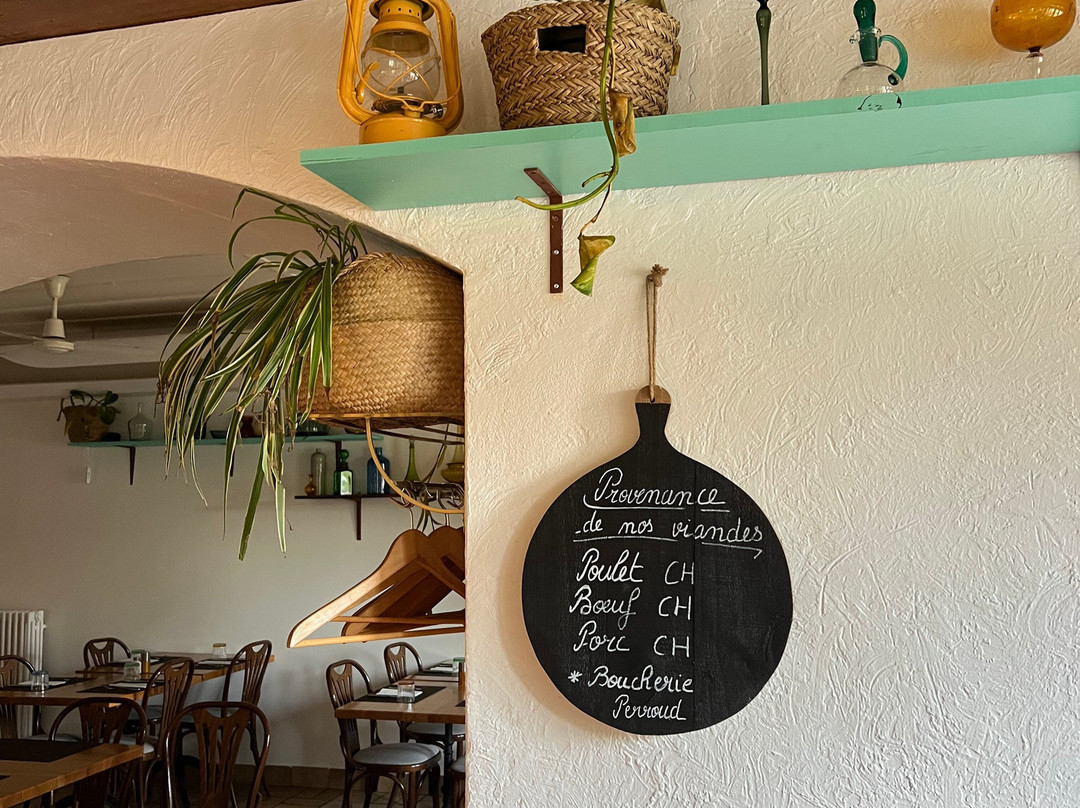 Provenance
de nos viandes
Poulet CH
Bœuf CH
Porc CH
* Boucherie
Perroud